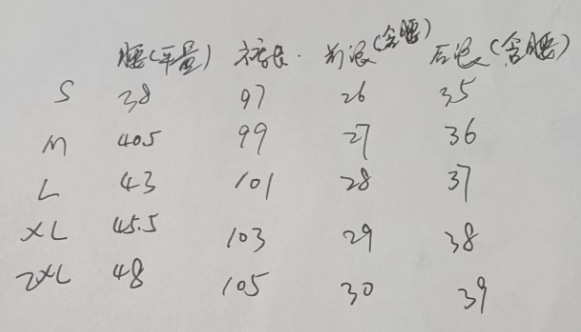 腰(平量) 裤长 前浪(含腰) 后浪(含腰)
S 38 97 26 35
M 40.5 99 27 36
L 43 101 28 37
XL 45.5 103 29 38
2XL 48 105 30 39